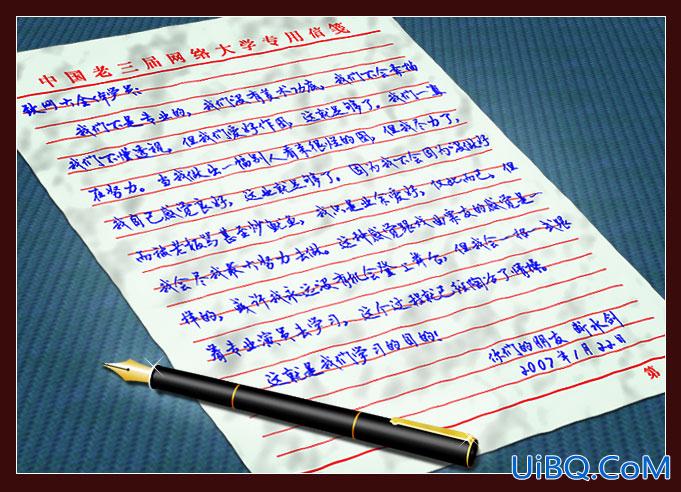 中国老三届网络大学专用信笺
联网大全体学员:
我们不是专业的,我们没有美术功底,我们不会素描
我们不懂透视,但我们爱好作图,这就足够了。我们一直
在努力。当我做出一幅别人看来很怪的图,但我尽力了,
我自己感觉良好,这也就足够了。因为我不会因为没做好
而被老板骂甚至炒鱿鱼,我只是业余爱好,仅此而已。但
我会尽我最大努力去做。这种感觉跟戏曲票友的感觉是一
样的,或许我永远没有机会登上舞台,但我会一招一式跟
着专业演员去学习,这个过程就已经陶冶了情操。
这就是我们学习的目的!
你们的朋友
2007年1月22日
第
UiBQ.CoM